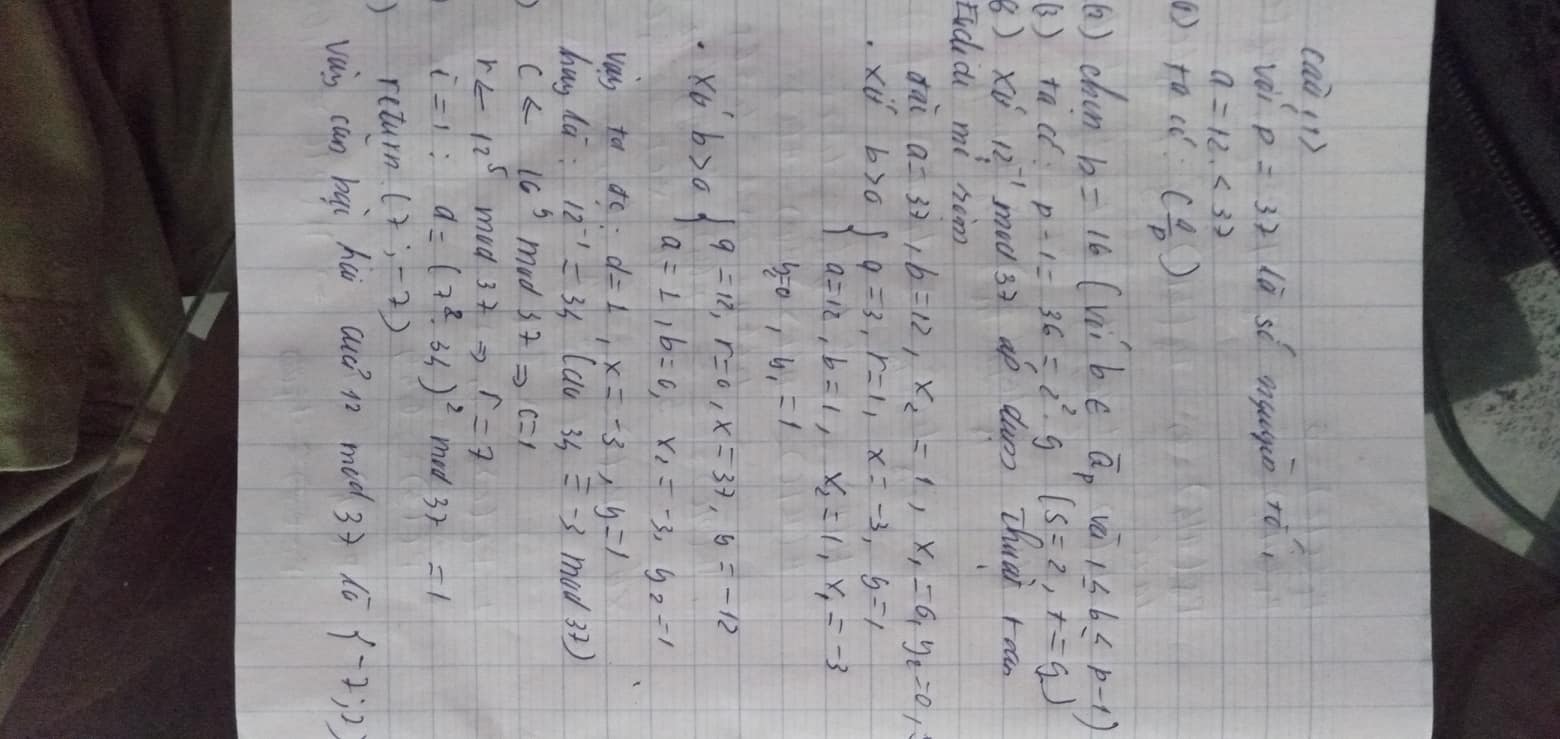 câu 11)
với p = 37 là số nguyên tố,
a = 12 < 37
1) ta có: (a/p)
(2) chọn b = 16 (vì b ∈ Q̅p và 1 ≤ b ≤ p-1)
(3) ta có: p-1 = 36 = 2². 9 (s=2, t=9)
) Xử 12⁻¹ mod 37 áp dụng Thuật toán
Euclid mở rộng
đặt a = 37, b=12, x₂ = 1, x₁ = 0, y₂ = 0,
• Xử b>0 { q = 3, r=1, x = -3, y=1
{ a=12, b=1, x₂=1, x₁ = -3
y₂=0, y₁ = 1
• Xử b>0 { q = 12, r=0, x=37, y = -12
a = 1, b=0, x₂ = -3, y₂ = 1
Vậy ta đc: d=1, x = -3, y=1
hay là: 12⁻¹ = 34 (do 34 ≡ -3 mod 37)
) c ← 16⁹ mod 37 ⇒ c=1
r ← 12⁵ mod 37 ⇒ r = 7
) i = 1: a = (7². 34)² mod 37 = 1
) return (7; -7)
Vậy căn bậc hai của 12 mod 37 là {-7;7}